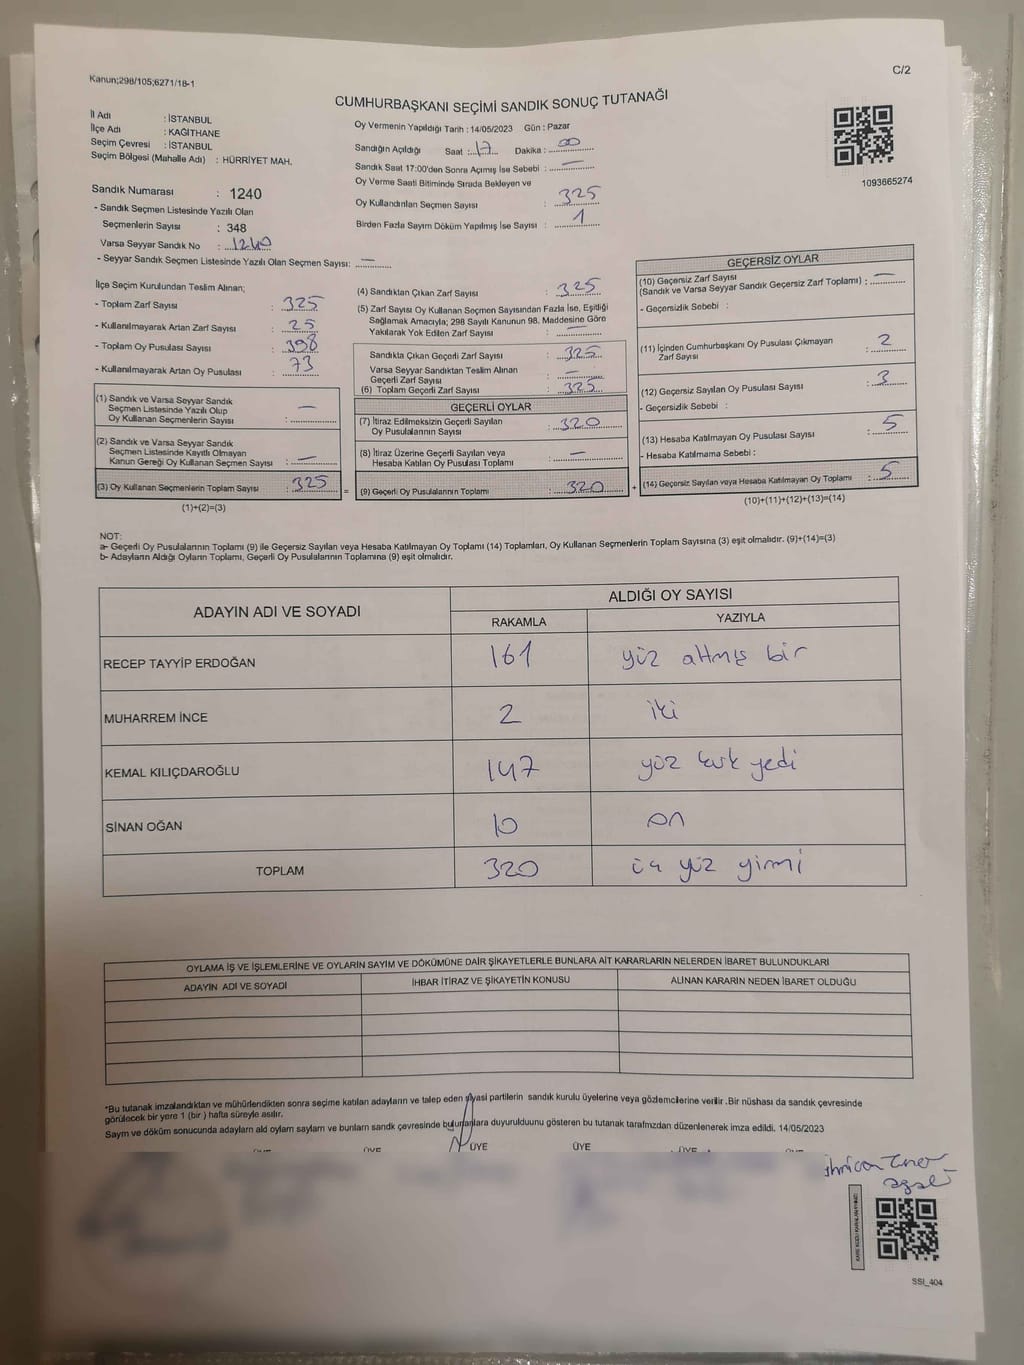 Kanun;298/105;6271/18-1
C/2
CUMHURBAŞKANI SEÇİMİ SANDIK SONUÇ TUTANAĞI
İl Adı : İSTANBUL
İlçe Adı : KAĞITHANE
Seçim Çevresi : İSTANBUL
Seçim Bölgesi (Mahalle Adı) : HÜRRİYET MAH.
Oy Vermenin Yapıldığı Tarih : 14/05/2023 Gün : Pazar
Sandığın Açıldığı Saat : 17 Dakika : 00
Sandık Saat 17:00'den Sonra Açımış İse Sebebi : —
Oy Verme Saati Bitiminde Sırada Bekleyen ve
Oy Kullandırılan Seçmen Sayısı : 325
Birden Fazla Sayım Döküm Yapılmış İse Sayısı : 1
1093665274
Sandık Numarası : 1240
- Sandık Seçmen Listesinde Yazılı Olan
Seçmenlerin Sayısı : 348
Varsa Seyyar Sandık No : 1240
- Seyyar Sandık Seçmen Listesinde Yazılı Olan Seçmen Sayısı: —
İlçe Seçim Kurulundan Teslim Alınan;
- Toplam Zarf Sayısı : 325
- Kullanılmayarak Artan Zarf Sayısı : 25
- Toplam Oy Pusulası Sayısı : 398
- Kullanılmayarak Artan Oy Pusulası : 73
(1) Sandık ve Varsa Seyyar Sandık
Seçmen Listesinde Yazılı Olup
Oy Kullanan Seçmenlerin Sayısı : —
(2) Sandık ve Varsa Seyyar Sandık
Seçmen Listesinde Kayıtlı Olmayan
Kanun Gereği Oy Kullanan Seçmen Sayısı : —
(3) Oy Kullanan Seçmenlerin Toplam Sayısı : 325 =
(1)+(2)=(3)
(4) Sandıktan Çıkan Zarf Sayısı : 325
(5) Zarf Sayısı Oy Kullanan Seçmen Sayısından Fazla İse, Eşitliği
Sağlamak Amacıyla; 298 Sayılı Kanunun 98. Maddesine Göre
Yakılarak Yok Edilen Zarf Sayısı : —
Sandıkta Çıkan Geçerli Zarf Sayısı : 325
Varsa Seyyar Sandıktan Teslim Alınan
Geçerli Zarf Sayısı : —
(6) Toplam Geçerli Zarf Sayısı : 325
GEÇERLİ OYLAR
(7) İtiraz Edilmeksizin Geçerli Sayılan
Oy Pusulalarının Sayısı : 320
(8) İtiraz Üzerine Geçerli Sayılan veya
Hesaba Katılan Oy Pusulası Toplamı : —
(9) Geçerli Oy Pusulalarının Toplamı : 320 +
GEÇERSİZ OYLAR
(10) Geçersiz Zarf Sayısı
(Sandık ve Varsa Seyyar Sandık Geçersiz Zarf Toplamı) : —
- Geçersizlik Sebebi :
(11) İçinden Cumhurbaşkanı Oy Pusulası Çıkmayan
Zarf Sayısı : 2
(12) Geçersiz Sayılan Oy Pusulası Sayısı : 3
- Geçersizlik Sebebi :
(13) Hesaba Katılmayan Oy Pusulası Sayısı : 5
- Hesaba Katılmama Sebebi :
(14) Geçersiz Sayılan veya Hesaba Katılmayan Oy Toplamı : 5
(10)+(11)+(12)+(13)=(14)
NOT:
a- Geçerli Oy Pusulalarının Toplamı (9) ile Geçersiz Sayılan veya Hesaba Katılmayan Oy Toplamı (14) Toplamları, Oy Kullanan Seçmenlerin Toplam Sayısına (3) eşit olmalıdır. (9)+(14)=(3)
b- Adayların Aldığı Oyların Toplamı, Geçerli Oy Pusulalarının Toplamına (9) eşit olmalıdır.
ADAYIN ADI VE SOYADI
ALDIĞI OY SAYISI
RAKAMLA YAZIYLA
RECEP TAYYİP ERDOĞAN 161 yüz altmış bir
MUHARREM İNCE 2 iki
KEMAL KILIÇDAROĞLU 147 yüz kırk yedi
SİNAN OĞAN 10 on
TOPLAM 320 üç yüz yirmi
OYLAMA İŞ VE İŞLEMLERİNE VE OYLARIN SAYIM VE DÖKÜMÜNE DAİR ŞİKAYETLERLE BUNLARA AİT KARARLARIN NELERDEN İBARET BULUNDUKLARI
ADAYIN ADI VE SOYADI İHBAR İTİRAZ VE ŞİKAYETİN KONUSU ALINAN KARARIN NEDEN İBARET OLDUĞU
*Bu tutanak imzalandıktan ve mühürlendikten sonra seçime katılan adayların ve talep eden siyasi partilerin sandık kurulu üyelerine veya gözlemcilerine verilir .Bir nüshası da sandık çevresinde
görülecek bir yere 1 (bir ) hafta süreyle asılır.
Sayım ve döküm sonucunda adayların ald oyların sayların ve bunların sandk çevresinde bulunanlara duyurulduunu gösteren bu tutanak tarafmızdan düzenlenerek imza edildi. 14/05/2023
ÜYE ÜYE ÜYE ÜYE
SSI_404